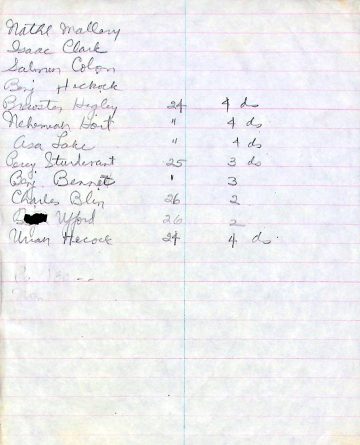 Nathl Mallory
Isaac Clark
Salmon Colon
Benj Hickock
Brewster Higley 24 4 ds
Nehemiah Hart " 4 ds
Asa Lake " 4 ds
Percy Sturdevant 25 3 ds
Benj. Bennet " 3
Charles Blin 26 2
Ufford 26 2
Urian Hecock 24 4 ds